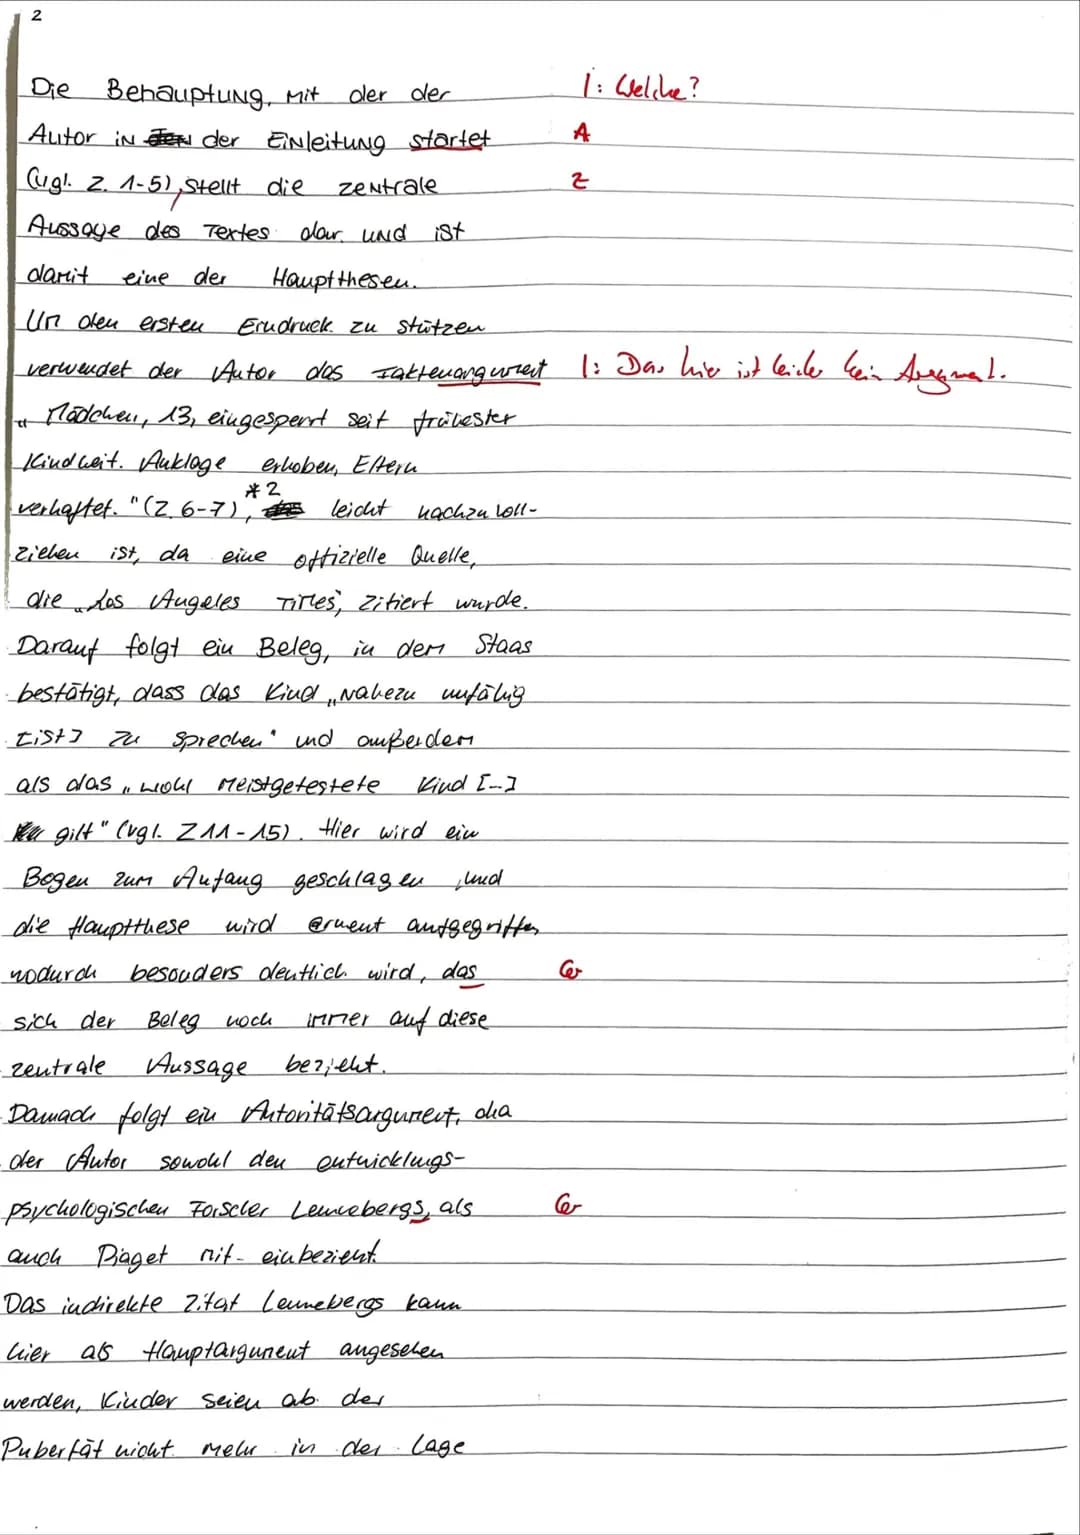 2
Die Behauptung, mit der der I: Welche?
Autor in den der Einleitung startet A
(vgl. Z. 1-5), stellt die zentrale Z
Aussage des Textes dar und ist
damit eine der Hauptthesen.
Um den ersten Eindruck zu stützen
verwendet der Autor das Faktenargument I: Das hier ist leider kein Argument.
"Mädchen, 13, eingesperrt seit frühester
Kindheit. Anklage erhoben, Eltern
verhaftet."(Z. 6-7), *2 leicht nachzuvoll-
ziehen ist, da eine offizielle Quelle,
die "Los Angeles Times", zitiert wurde.
Darauf folgt ein Beleg, in dem Staas
bestätigt, dass das Kind "nahezu unfähig
[ist] zu sprechen" und außerdem
als das "wohl meistgetestete Kind [...]
gilt" (vgl. Z 11-15). Hier wird ein
Bogen zum Anfang geschlagen, und
die Hauptthese wird erneut aufgegriffen
wodurch besonders deutlich wird, das Gr
sich der Beleg noch immer auf diese
zentrale Aussage bezieht.
Danach folgt ein Autoritätsargument, da
der Autor sowohl den entwicklungs-
psychologischen Forscher Lennebergs, als Gr
auch Piaget mit-einbezieht.
Das indirekte Zitat Lennebergs kann
hier als Hauptargument angesehen
werden, Kinder seien ab der
Pubertät nicht mehr in der Lage